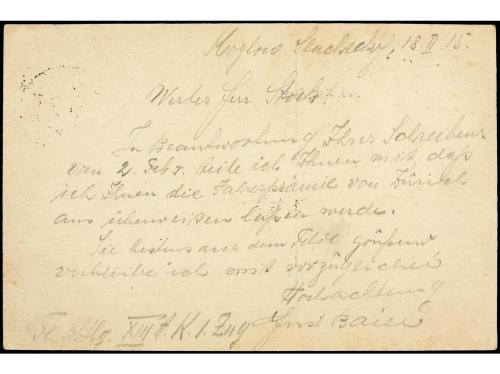 18.II.15.
Werter Herr
In Beantwortung Ihres Schreibens
von 2. Febr. teile ich Ihnen mit daß
ich Ihnen die von Zürich
aus überweisen laßen werde.
Sie bestens aus dem Felde grüßend
verbleibe ich mit vorzüglicher
Hochachtung
XIII A. K. 1. Zug Baier